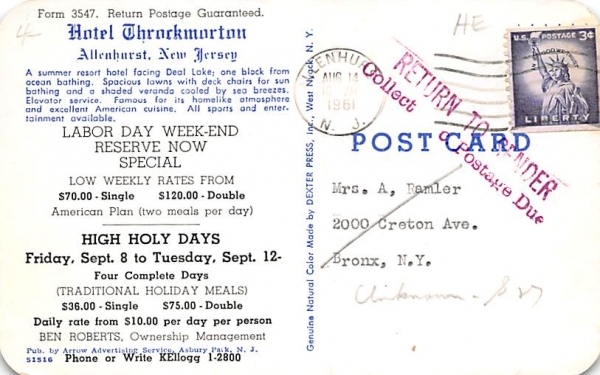 Form 3547. Return Postage Guaranteed.
Hotel Throckmorton
Allenhurst, New Jersey
A summer resort hotel facing Deal Lake; one block from
ocean bathing. Spacious lawns with deck chairs for sun
bathing and a shaded veranda cooled by sea breezes.
Elevator service. Famous for its homelike atmosphere
and excellent American cuisine. All sports and enter-
tainment available.
LABOR DAY WEEK-END
RESERVE NOW
SPECIAL
LOW WEEKLY RATES FROM
$70.00 - Single $120.00 - Double
American Plan (two meals per day)
HIGH HOLY DAYS
Friday, Sept. 8 to Tuesday, Sept. 12-
Four Complete Days
(TRADITIONAL HOLIDAY MEALS)
$36.00 - Single $75.00 - Double
Daily rate from $10.00 per day per person
BEN ROBERTS, Ownership Management
Pub. by Arrow Advertising Service, Asbury Park, N. J.
51516 Phone or Write KEllogg 1-2800
Genuine Natural Color Made by DEXTER PRESS, Inc., West Nyack, N. Y.
HE
AUG 14
1961
N. J.
U.S. POSTAGE 3¢
IN GOD WE TRUST
LIBERTY
RETURN TO SENDER
Collect Postage Due
POST CARD
Mrs. A, Ramler
2000 Creton Ave.
Bronx, N.Y.
Unknown